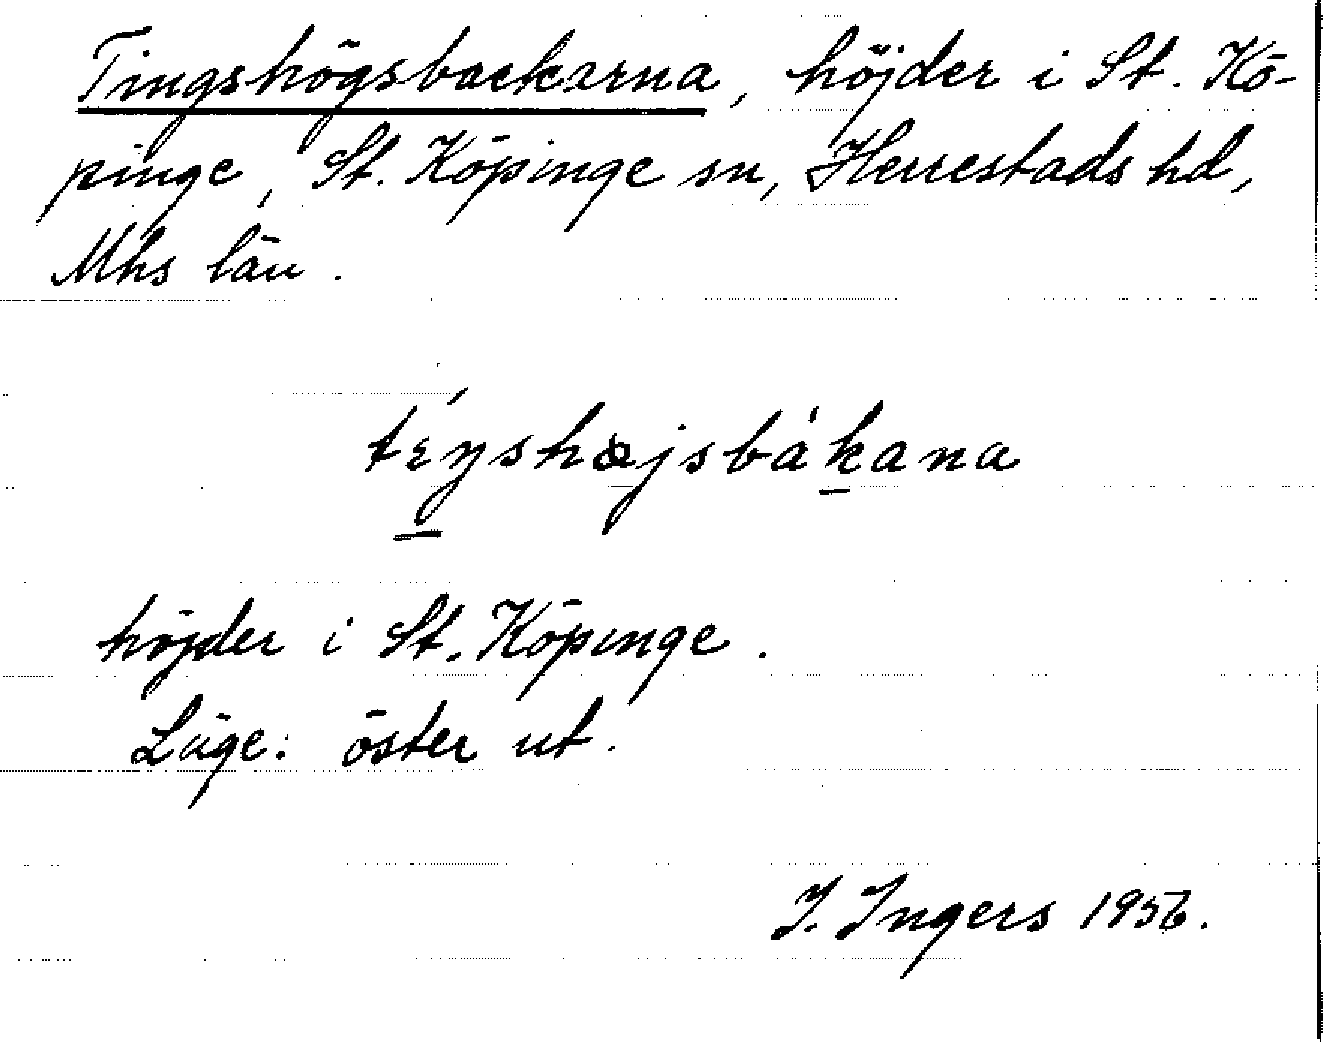 Tingshögsbackarna, höjder i St. Kö-
pinge, St. Köpinge sn, Herrestads hd,
Mhs län.
téŋshøjsbàkana
höjder i St. Köpinge.
Läge: öster ut.
I. Ingers 1956.